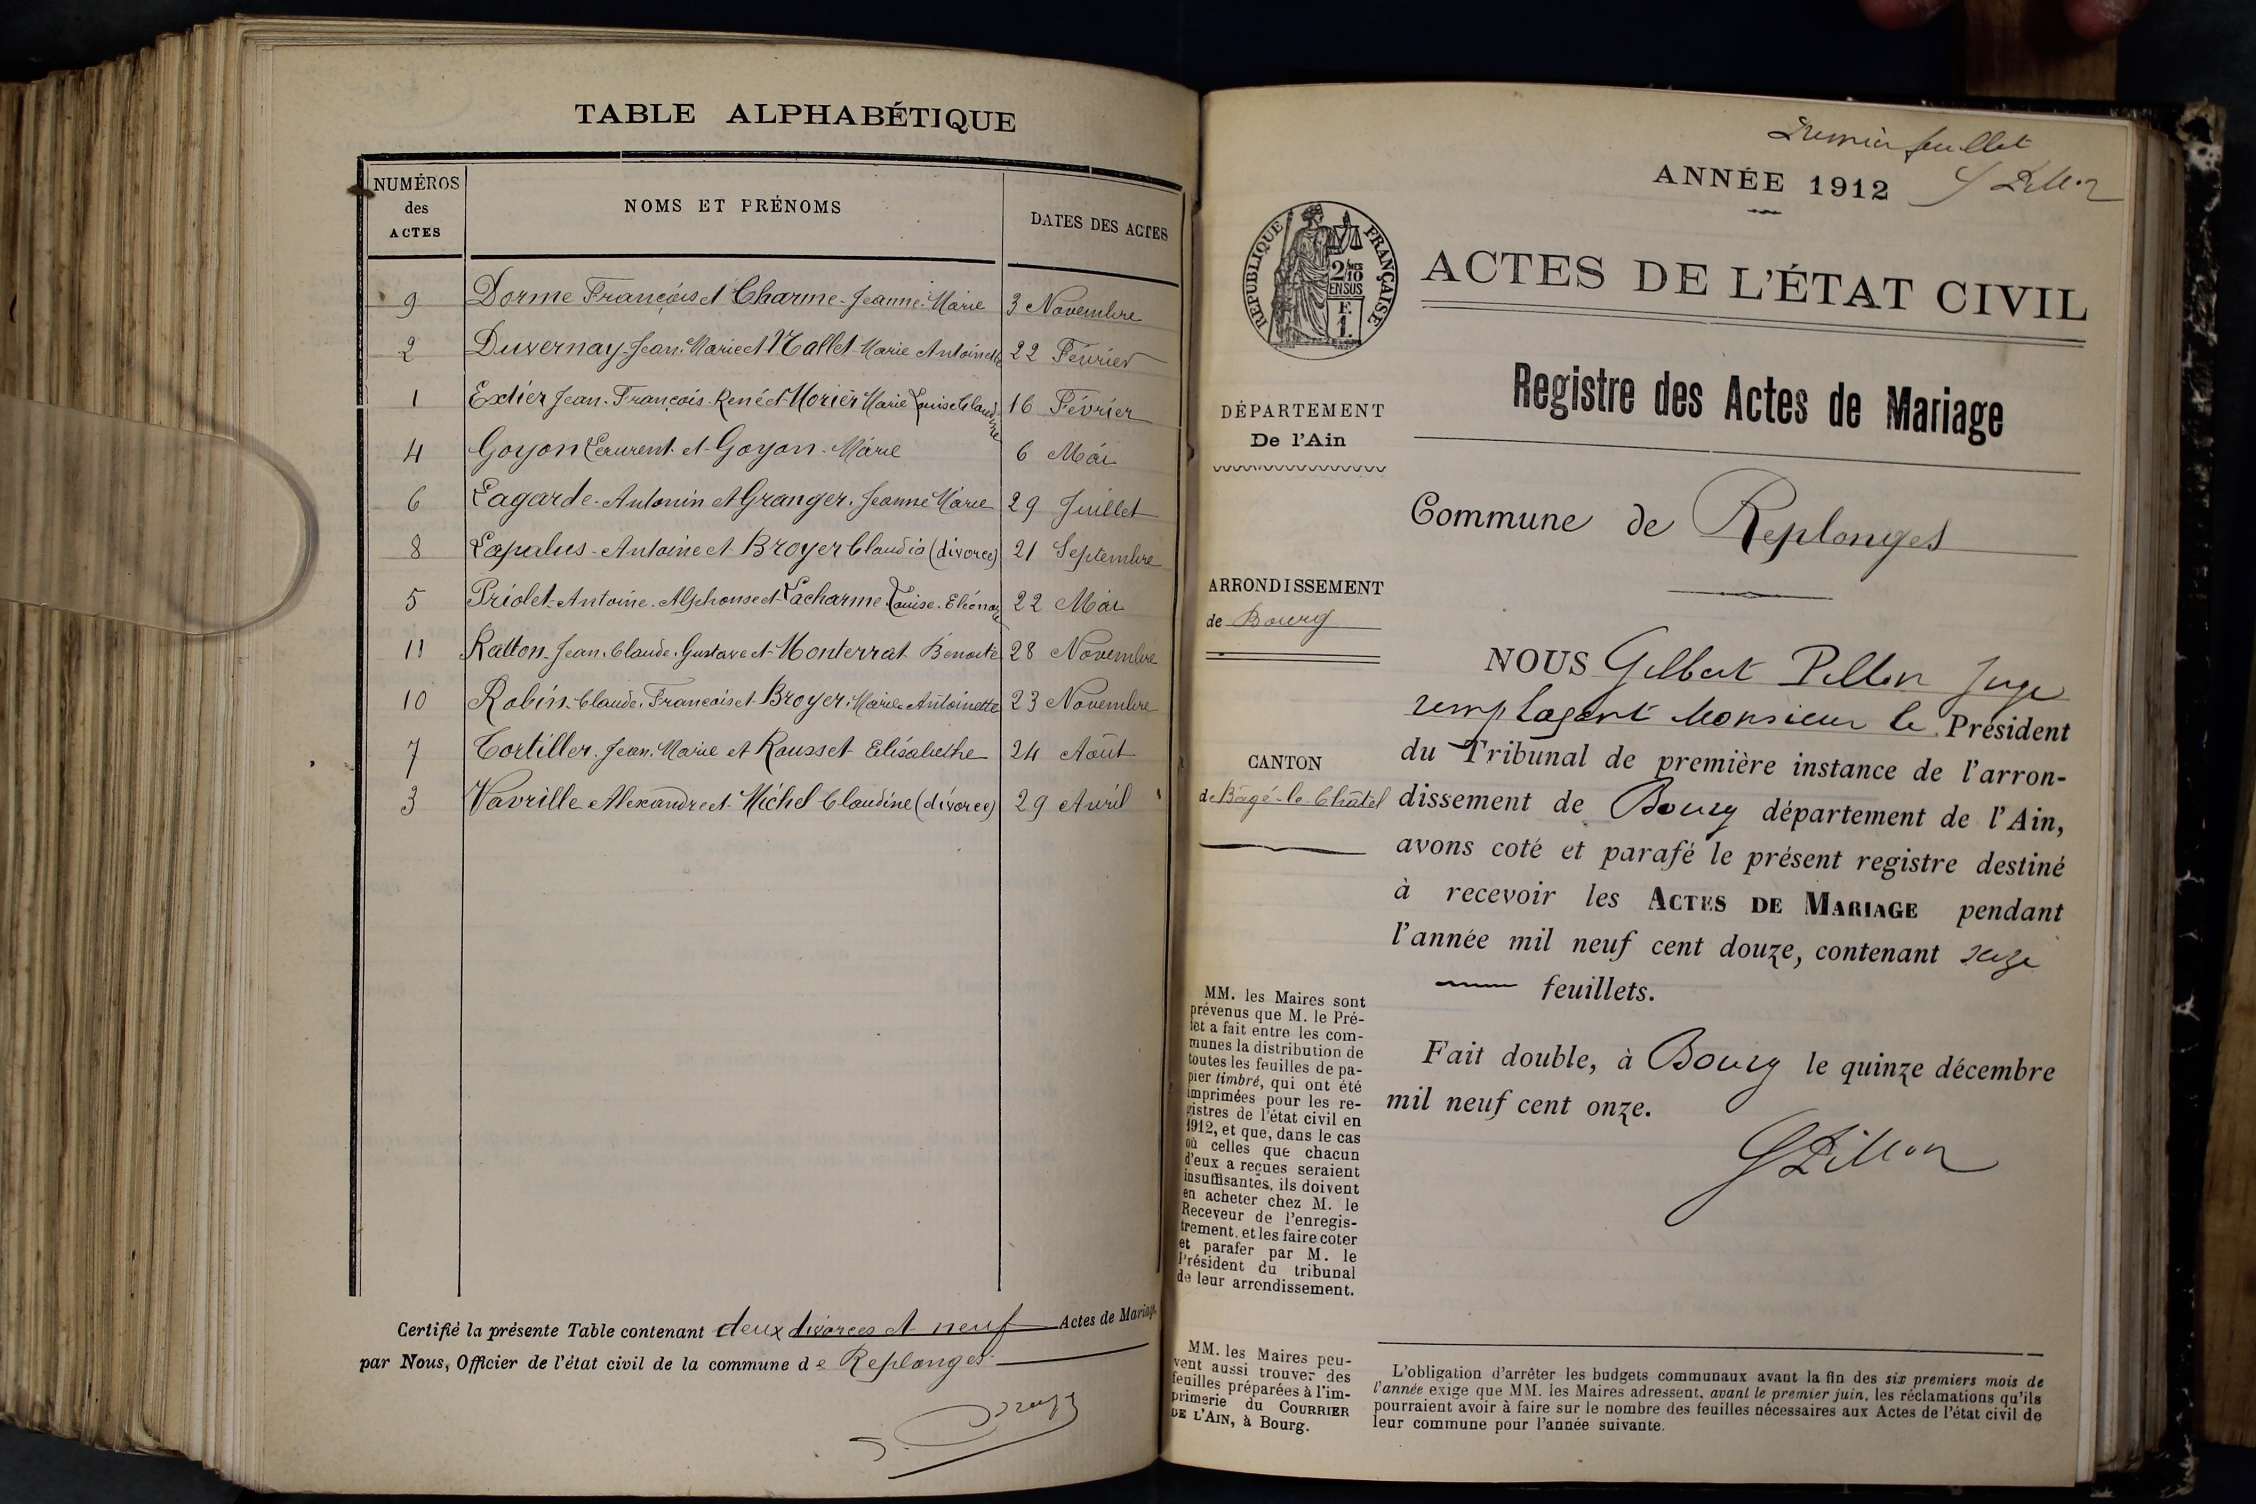 TABLE ALPHABÉTIQUE
NUMÉROS
des
ACTES
NOMS ET PRÉNOMS
DATES DES ACTES
9 Dorme François et Charme Jeanne Marie 3 Novembre
2 Duvernay Jean Marie et Nallet Marie Antoinette 22 Février
1 Extier Jean François René et Morier Marie Louise Claudine 16 Février
4 Goyon Laurent et Goyon Marie 6 Mai
6 Lagarde Antonin et Granger Jeanne Marie 29 Juillet
8 Lapalus Antoine et Broyer Claudia (divorce) 21 Septembre
5 Priolet Antoine Alphonse et Lacharme Louise Eléonore 22 Mai
11 Ratton Jean Claude Gustave et Monterrat Benoite 28 Novembre
10 Robin Claude François et Broyer Marie Antoinette 23 Novembre
7 Tortiller Jean Marie et Rousset Elisabethe 24 Août
3 Vavrille Alexandre et Michel Claudine (divorce) 29 Avril
Certifié la présente Table contenant deux divorces et neuf Actes de Mariage
par Nous, Officier de l'état civil de la commune de Replonges
Premier feuillet
ANNÉE 1912
G Pillon
RÉPUBLIQUE FRANÇAISE
2/10MES
EN SUS
F.
1.
ACTES DE L'ÉTAT CIVIL
Registre des Actes de Mariage
DÉPARTEMENT
De l'Ain
Commune de Replonges
ARRONDISSEMENT
de Bourg
CANTON
de Bâgé-le-Châtel
NOUS Gilbert Pillon Juge
remplaçant Monsieur le Président
du Tribunal de première instance de l'arron-
dissement de Bourg département de l'Ain,
avons coté et parafé le présent registre destiné
à recevoir les ACTES DE MARIAGE pendant
l'année mil neuf cent douze, contenant seize
feuillets.
Fait double, à Bourg le quinze décembre
mil neuf cent onze.
G Pillon
MM. les Maires sont
prévenus que M. le Pré-
fet a fait entre les com-
munes la distribution de
toutes les feuilles de pa-
pier timbré, qui ont été
imprimées pour les re-
gistres de l'état civil en
1912, et que, dans le cas
où celles que chacun
d'eux a reçues seraient
insuffisantes, ils doivent
en acheter chez M. le
Receveur de l'enregis-
trement, et les faire coter
et parafer par M. le
Président du tribunal
de leur arrondissement.
MM. les Maires peu-
vent aussi trouver des
feuilles préparées à l'im-
primerie du COURRIER
DE L'AIN, à Bourg.
L'obligation d'arrêter les budgets communaux avant la fin des six premiers mois de
l'année exige que MM. les Maires adressent, avant le premier juin, les réclamations qu'ils
pourraient avoir à faire sur le nombre des feuilles nécessaires aux Actes de l'état civil de
leur commune pour l'année suivante.